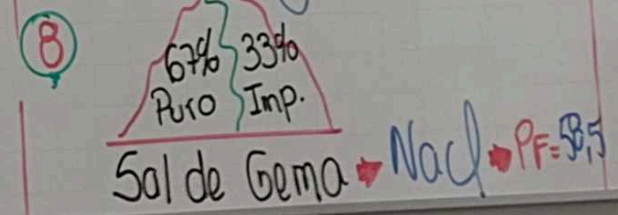 8
67% 33%
Puro Imp.
Sal de Gema → NaCl → PF=58,5